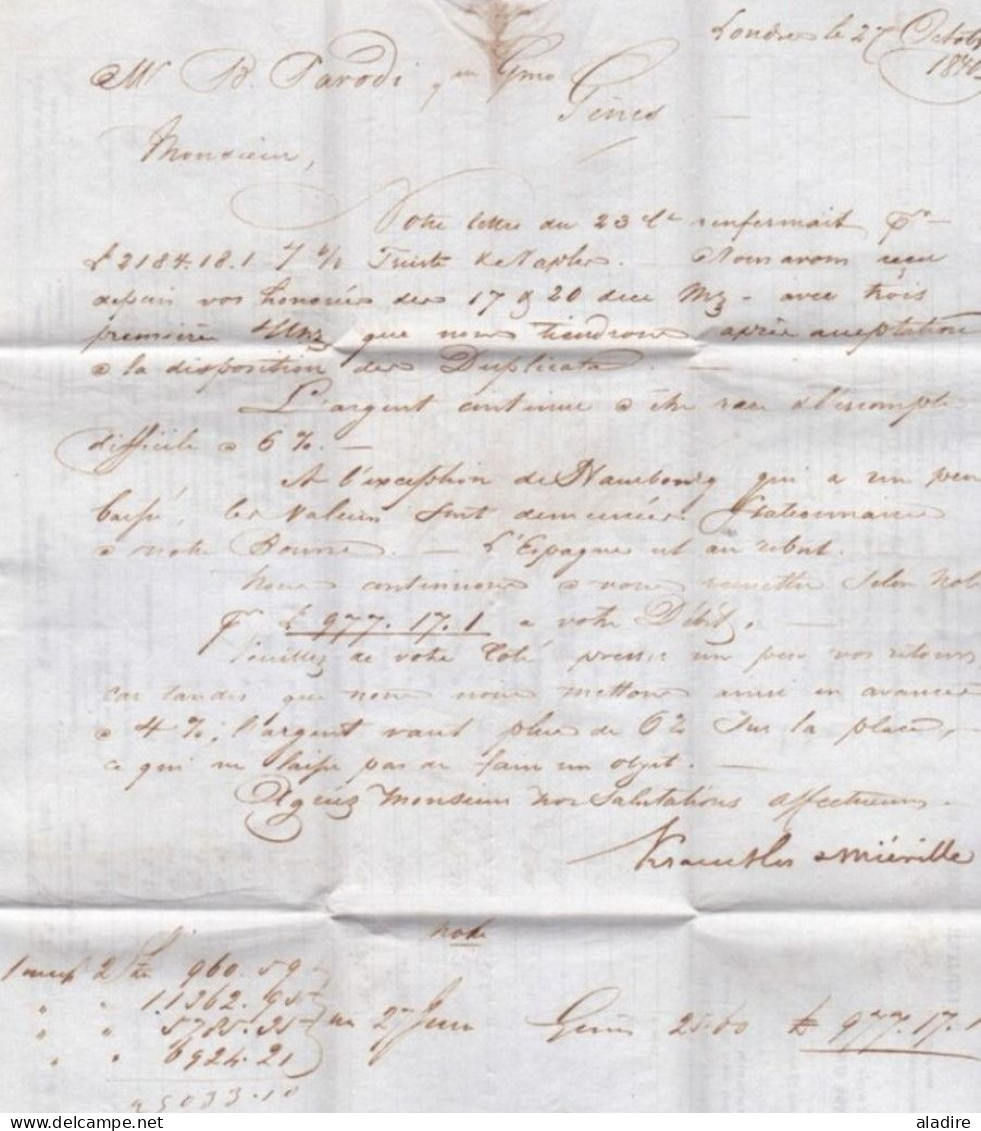 Londres le 27 Octob
Mr B. Parodi qm Gmo
Gênes
Monsieur,
Votre lettre du 23 Ct renfermait Pr
£ 2184.18.1 Trieste & Naples. Nous avons reçu
depuis vos honorées des 17 & 20 avec trois
première que nous tiendrons après acceptation
a la disposition des Duplicata. —
L'argent continue a être rare & l'escompte
difficile a 6 %. —
A l'exception de Hambourg qui a un peu
baissé, les Valeurs sont demeurées Stationnaires
a notre Bourse. — L'Espagne est au rebut.
Nous continuons a vous remettre selon note
Pr £ 977. 17. 1 a votre Débit. —
Veuillez de votre Coté presser un peu vos retours
car tandis que nous nous mettons ainsi en avances
a 4 %, l'argent vaut plus de 6 % sur la place, —
ce qui ne laisse pas de faire un objet. —
Agréez Monsieur nos Salutations affectueuses —
Miéville
Note
960. 59
11362. 95
5785. 35
6924. 21
25033.10
Gênes 25.60 £ 977. 17. 1
delcampe.net
aladire